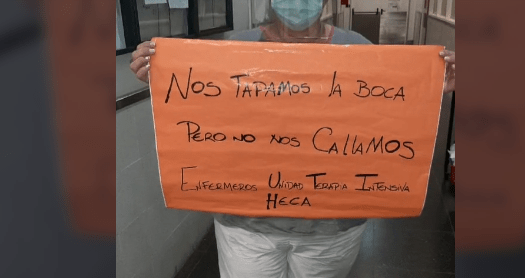 Nos Tapamos la Boca
Pero no nos Callamos
Enfermeros Unidad Terapia Intensiva
HECA